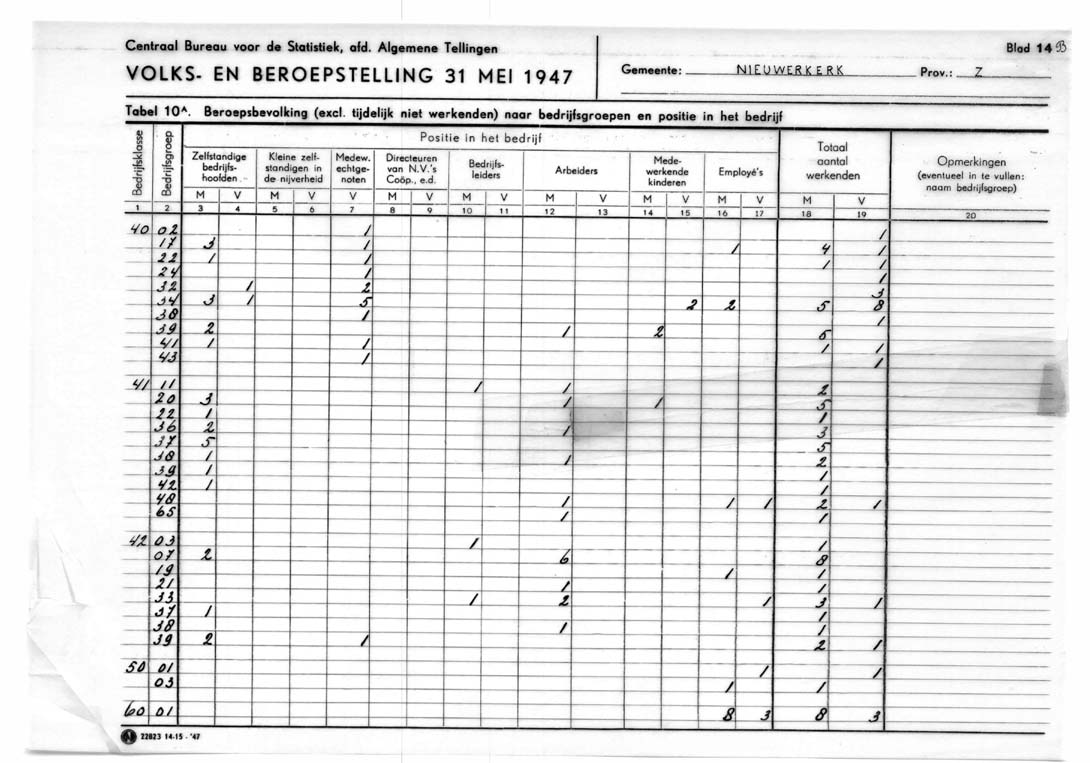 Centraal Bureau voor de Statistiek, afd. Algemene Tellingen
Blad 14 B
VOLKS- EN BEROEPSTELLING 31 MEI 1947
Gemeente: NIEUWERKERK Prov.: Z
Tabel 10A. Beroepsbevolking (excl. tijdelijk niet werkenden) naar bedrijfsgroepen en positie in het bedrijf
Bedrijfsklasse Bedrijfsgroep Positie in het bedrijf Totaal aantal werkenden Opmerkingen (eventueel in te vullen: naam bedrijfsgroep)
Zelfstandige bedrijfshoofden Kleine zelfstandigen in de nijverheid Medew. echtgenoten Directeuren van N.V.'s Coöp., e.d. Bedrijfsleiders Arbeiders Medewerkende kinderen Employé's
M V M V V M V M V M V M V M V M V
1 2 3 4 5 6 7 8 9 10 11 12 13 14 15 16 17 18 19 20
40 02 1 1
17 3 1 1 4 1
22 1 1 1 1
24 1 1
32 1 2 3
34 3 1 5 2 2 5 8
38 1 1
39 2 1 2 5
41 1 1 1 1
43 1 1
41 11 1 1 2
20 3 1 1 5
22 1 1
36 2 1 3
37 5 5
38 1 1 2
39 1 1
42 1 1
48 1 1 1 2 1
65 1 1
42 03 1 1
07 2 6 8
19 1 1
21 1 1
33 1 2 1 3 1
37 1 1
38 1 1
39 2 1 2 1
50 01 1 1
03 1 1
60 01 8 3 8 3
22823 14-15 - '47